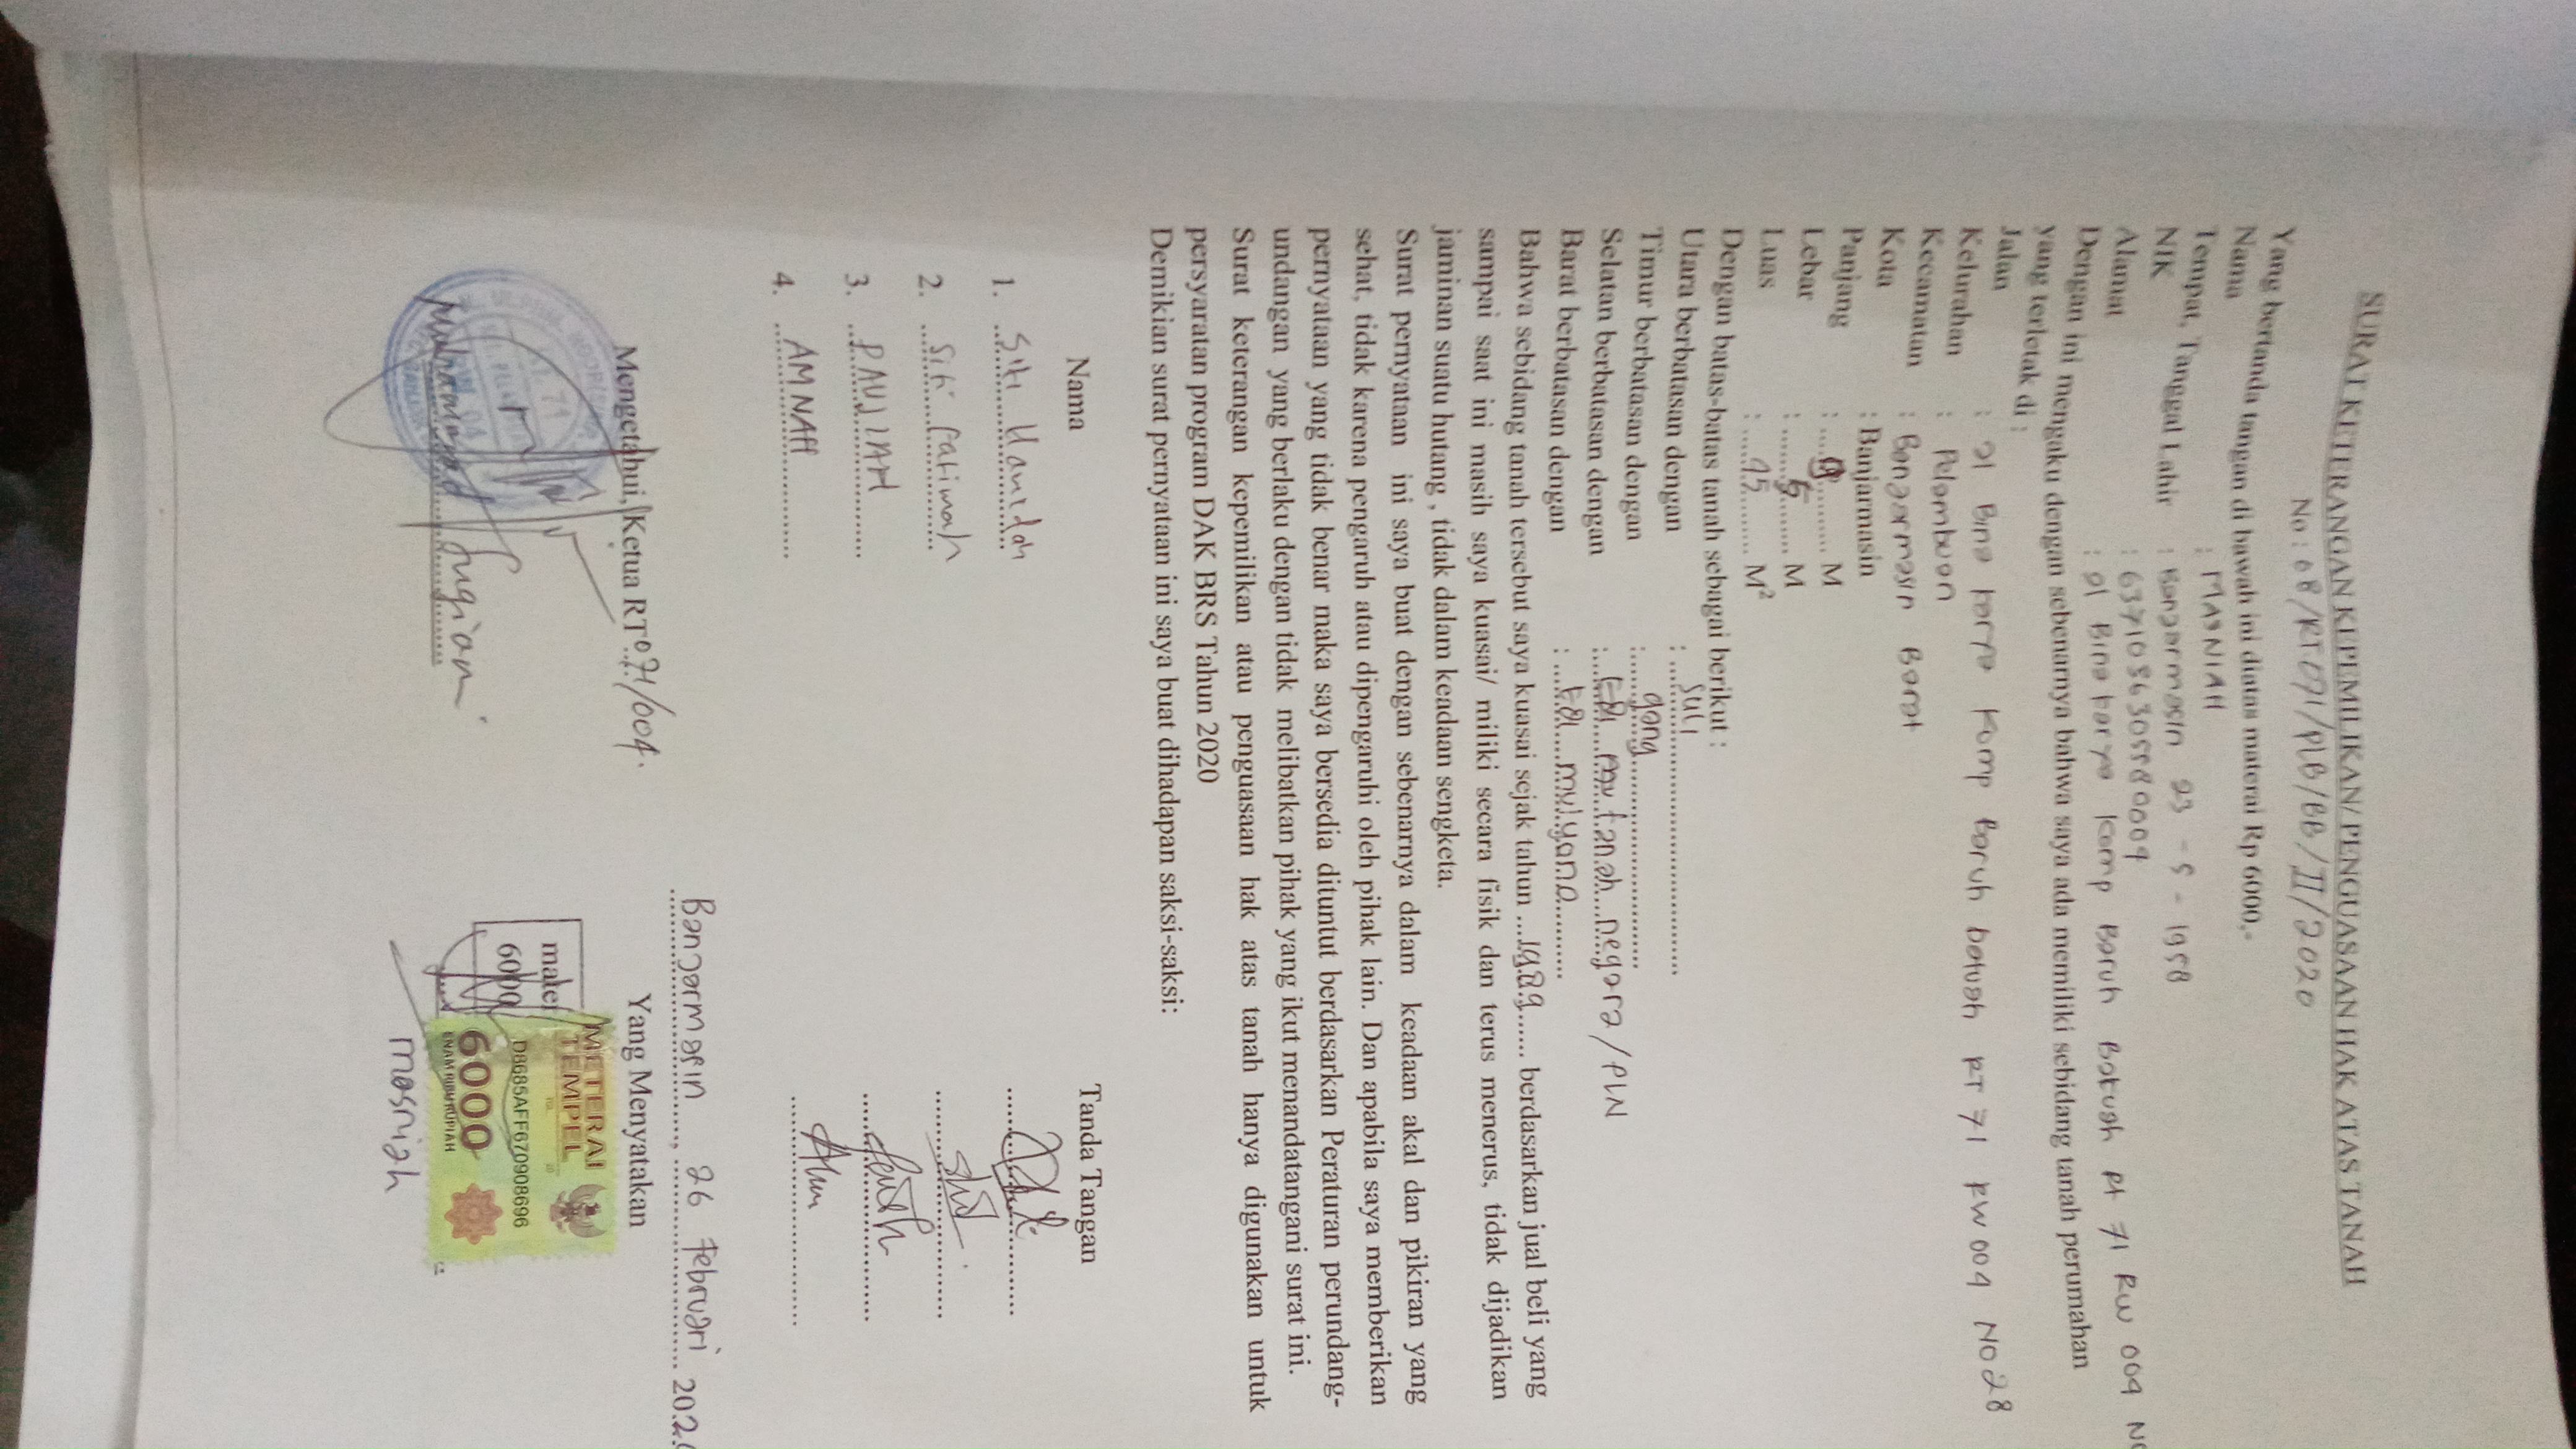 SURAT KETERANGAN KEPEMILIKAN/ PENGUASAAN HAK ATAS TANAH
No : 08/RT 071/PLB/BB/II/2020
Yang bertanda tangan di bawah ini diatas materai Rp 6000,-
Nama : MASNIAH
Tempat, Tanggal Lahir : Banjarmasin 23 - 5 - 1958
NIK : 6371036305580009
Alamat : Jl Bina karya komp Baruh Batuah Rt 71 RW 004 No
Dengan ini mengaku dengan sebenarnya bahwa saya ada memiliki sebidang tanah perumahan
yang terletak di :
Jalan : Jl Bina karya komp Baruh batuah RT 71 RW 004 NO 28
Kelurahan : Pelambuan
Kecamatan : Banjarmasin Barat
Kota : Banjarmasin
Panjang : ............ M
Lebar : .......5........ M
Luas : ............ M²
Dengan batas-batas tanah sebagai berikut :
Utara berbatasan dengan : ....Suli....
Timur berbatasan dengan : ....gang....
Selatan berbatasan dengan : .... tanah...negara/PLN
Barat berbatasan dengan : ........mulyono........
Bahwa sebidang tanah tersebut saya kuasai sejak tahun ...1989...... berdasarkan jual beli yang
sampai saat ini masih saya kuasai/ miliki secara fisik dan terus menerus, tidak dijadikan
jaminan suatu hutang , tidak dalam keadaan sengketa.
Surat pernyataan ini saya buat dengan sebenarnya dalam keadaan akal dan pikiran yang
sehat, tidak karena pengaruh atau dipengaruhi oleh pihak lain. Dan apabila saya memberikan
pernyataan yang tidak benar maka saya bersedia dituntut berdasarkan Peraturan perundang-
undangan yang berlaku dengan tidak melibatkan pihak yang ikut menandatangani surat ini.
Surat keterangan kepemilikan atau penguasaan hak atas tanah hanya digunakan untuk
persyaratan program DAK BRS Tahun 2020
Demikian surat pernyataan ini saya buat dihadapan saksi-saksi:
Nama Tanda Tangan
1. Siti Hamidah
2. Siti fatimah
3.
4. AMNAH
Banjarmasin, 26 Februari 202
Mengetahui, Ketua RT 071/004. Yang Menyatakan
mater
6000
METERAI
TEMPEL
D8685AFF670908696
6000
ENAM RIBU RUPIAH
Muhammad Sugiani
masniah